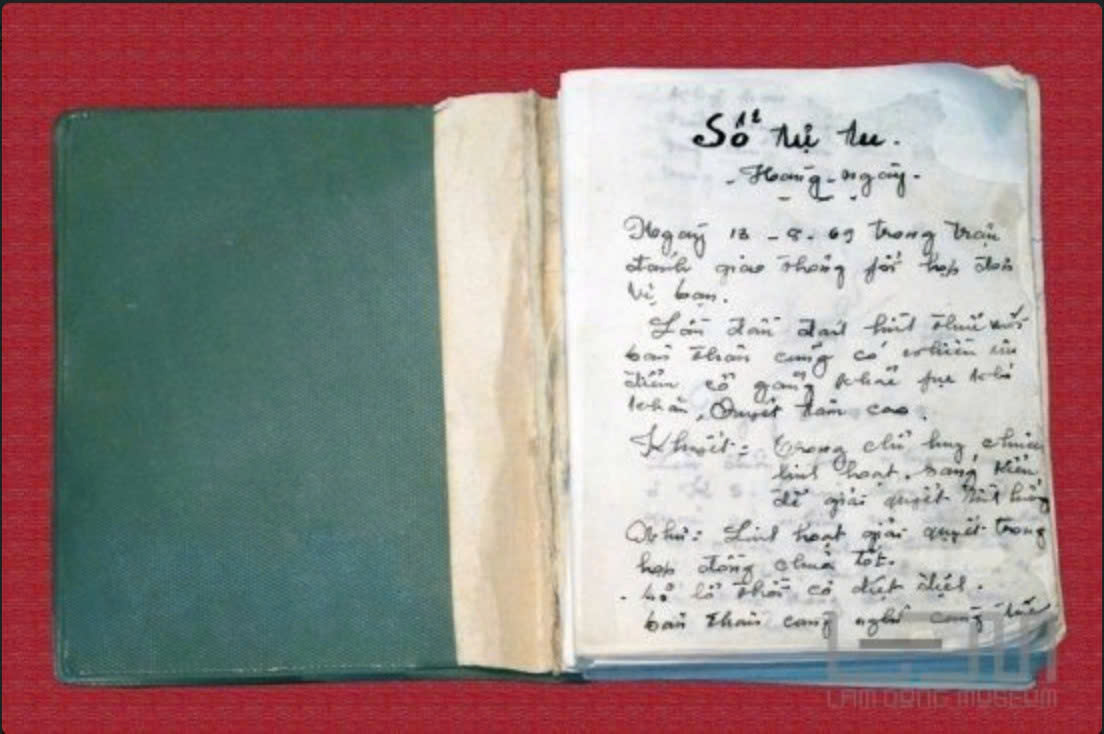 Sổ tự tu.
- Hàng ngày -
Ngày 18 - 8 - 69 trong trận
đánh giao thông phối hợp đơn
vị bạn.
Lần đầu
bản thân cũng có nhiều ưu
điểm cố gắng khắc phục khó
khăn, quyết tâm cao.
Khuyết: Trong chỉ huy chưa
linh hoạt, sáng kiến
để giải quyết tình huống
Như: Linh hoạt giải quyết trong
hợp đồng chưa tốt.
bỏ lỡ thời cơ diệt địch.
bản thân càng nghĩ càng tức
LAM DONG MUSEUM